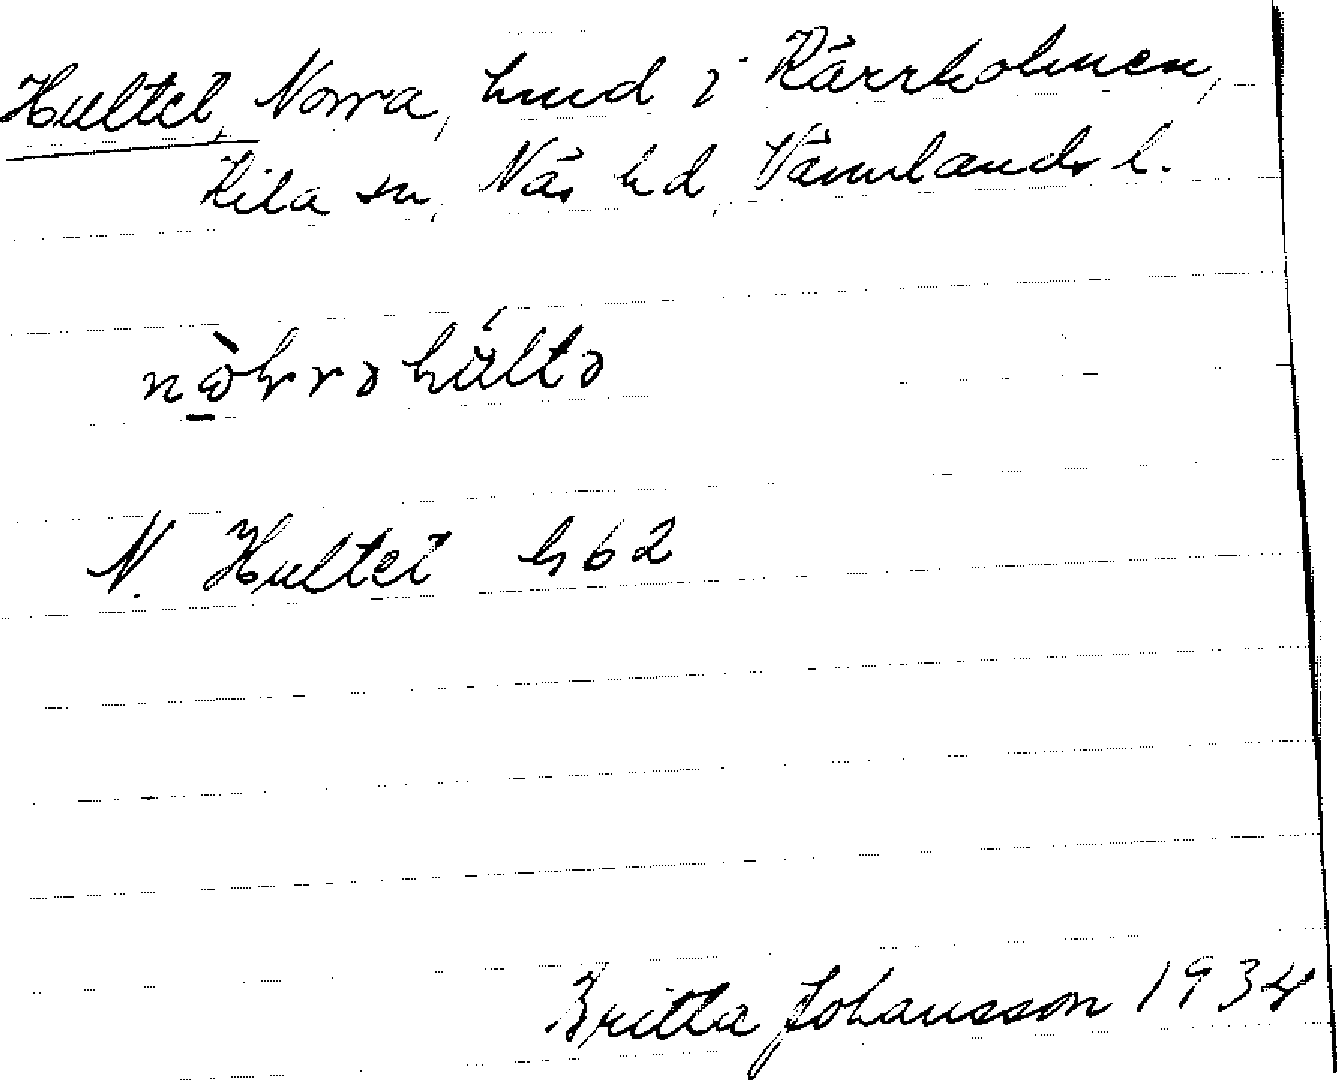 Hultet, Norra, hmd i Kärrholmen,
Kila sn, Näs hd, Värmlands l.
N. Hultet h 62
Britta Johansson 1934